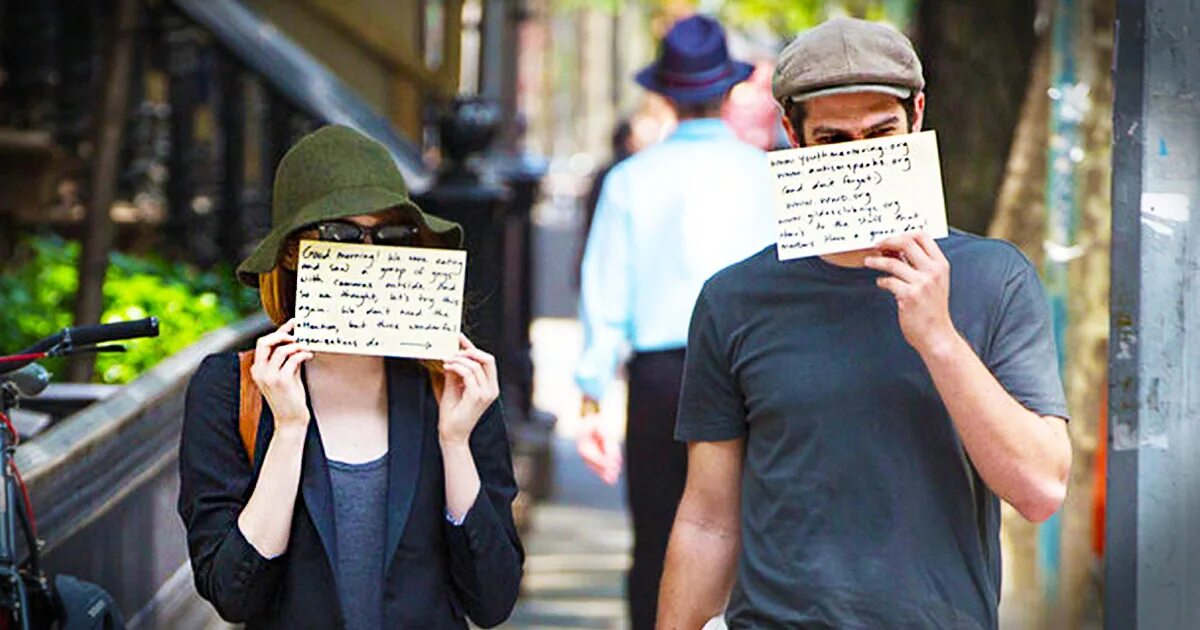 Good morning! We were eating
and saw a group of guys
with cameras outside. And
so we thought, let's try this
again. We don't need the
attention, but these wonderful
organizations do. →
www.youthmentoring.org
www.autismspeaks.org
(and don't forget:)
www.wwo.org
www.gildasclubnyc.org
Here's to the stuff that
matters. Have a great day!